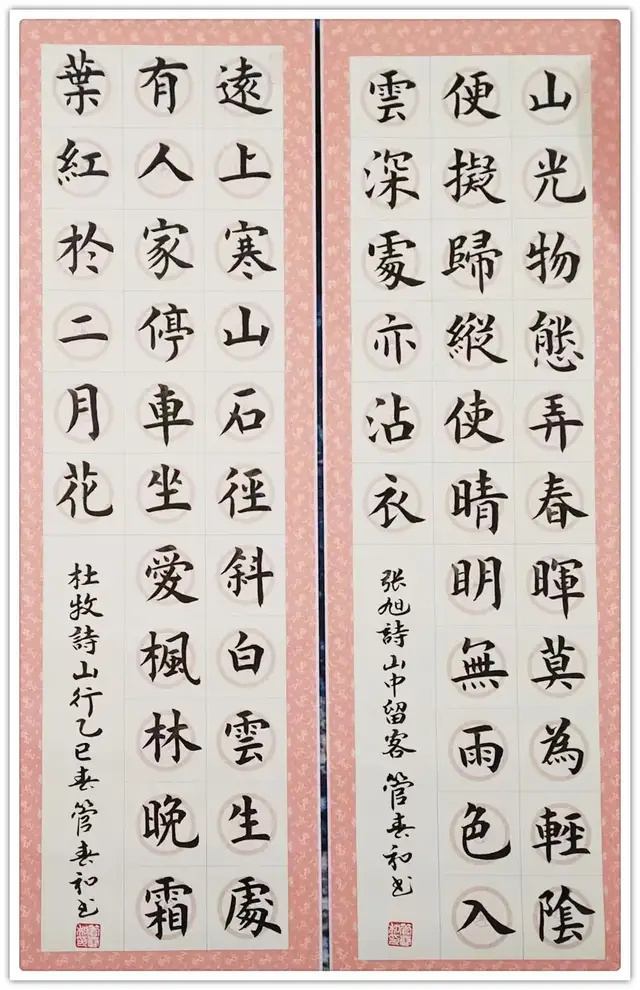 山光物態弄春暉莫為輕陰
便擬歸縱使晴明無雨色入
雲深處亦沾衣
张旭詩山中留客 管春和书
遠上寒山石徑斜白雲生處
有人家停車坐愛楓林晚霜
葉紅於二月花
杜牧詩山行乙巳春管春和书